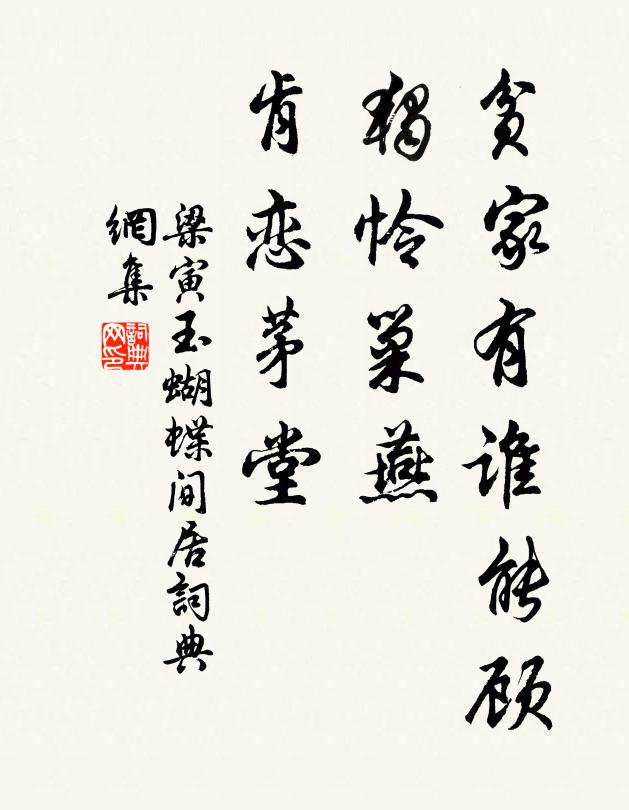 贫家有谁能顾
独怜巢燕
肯恋茅堂
梁寅玉蝴蝶间居詞典
網集
詞典网印